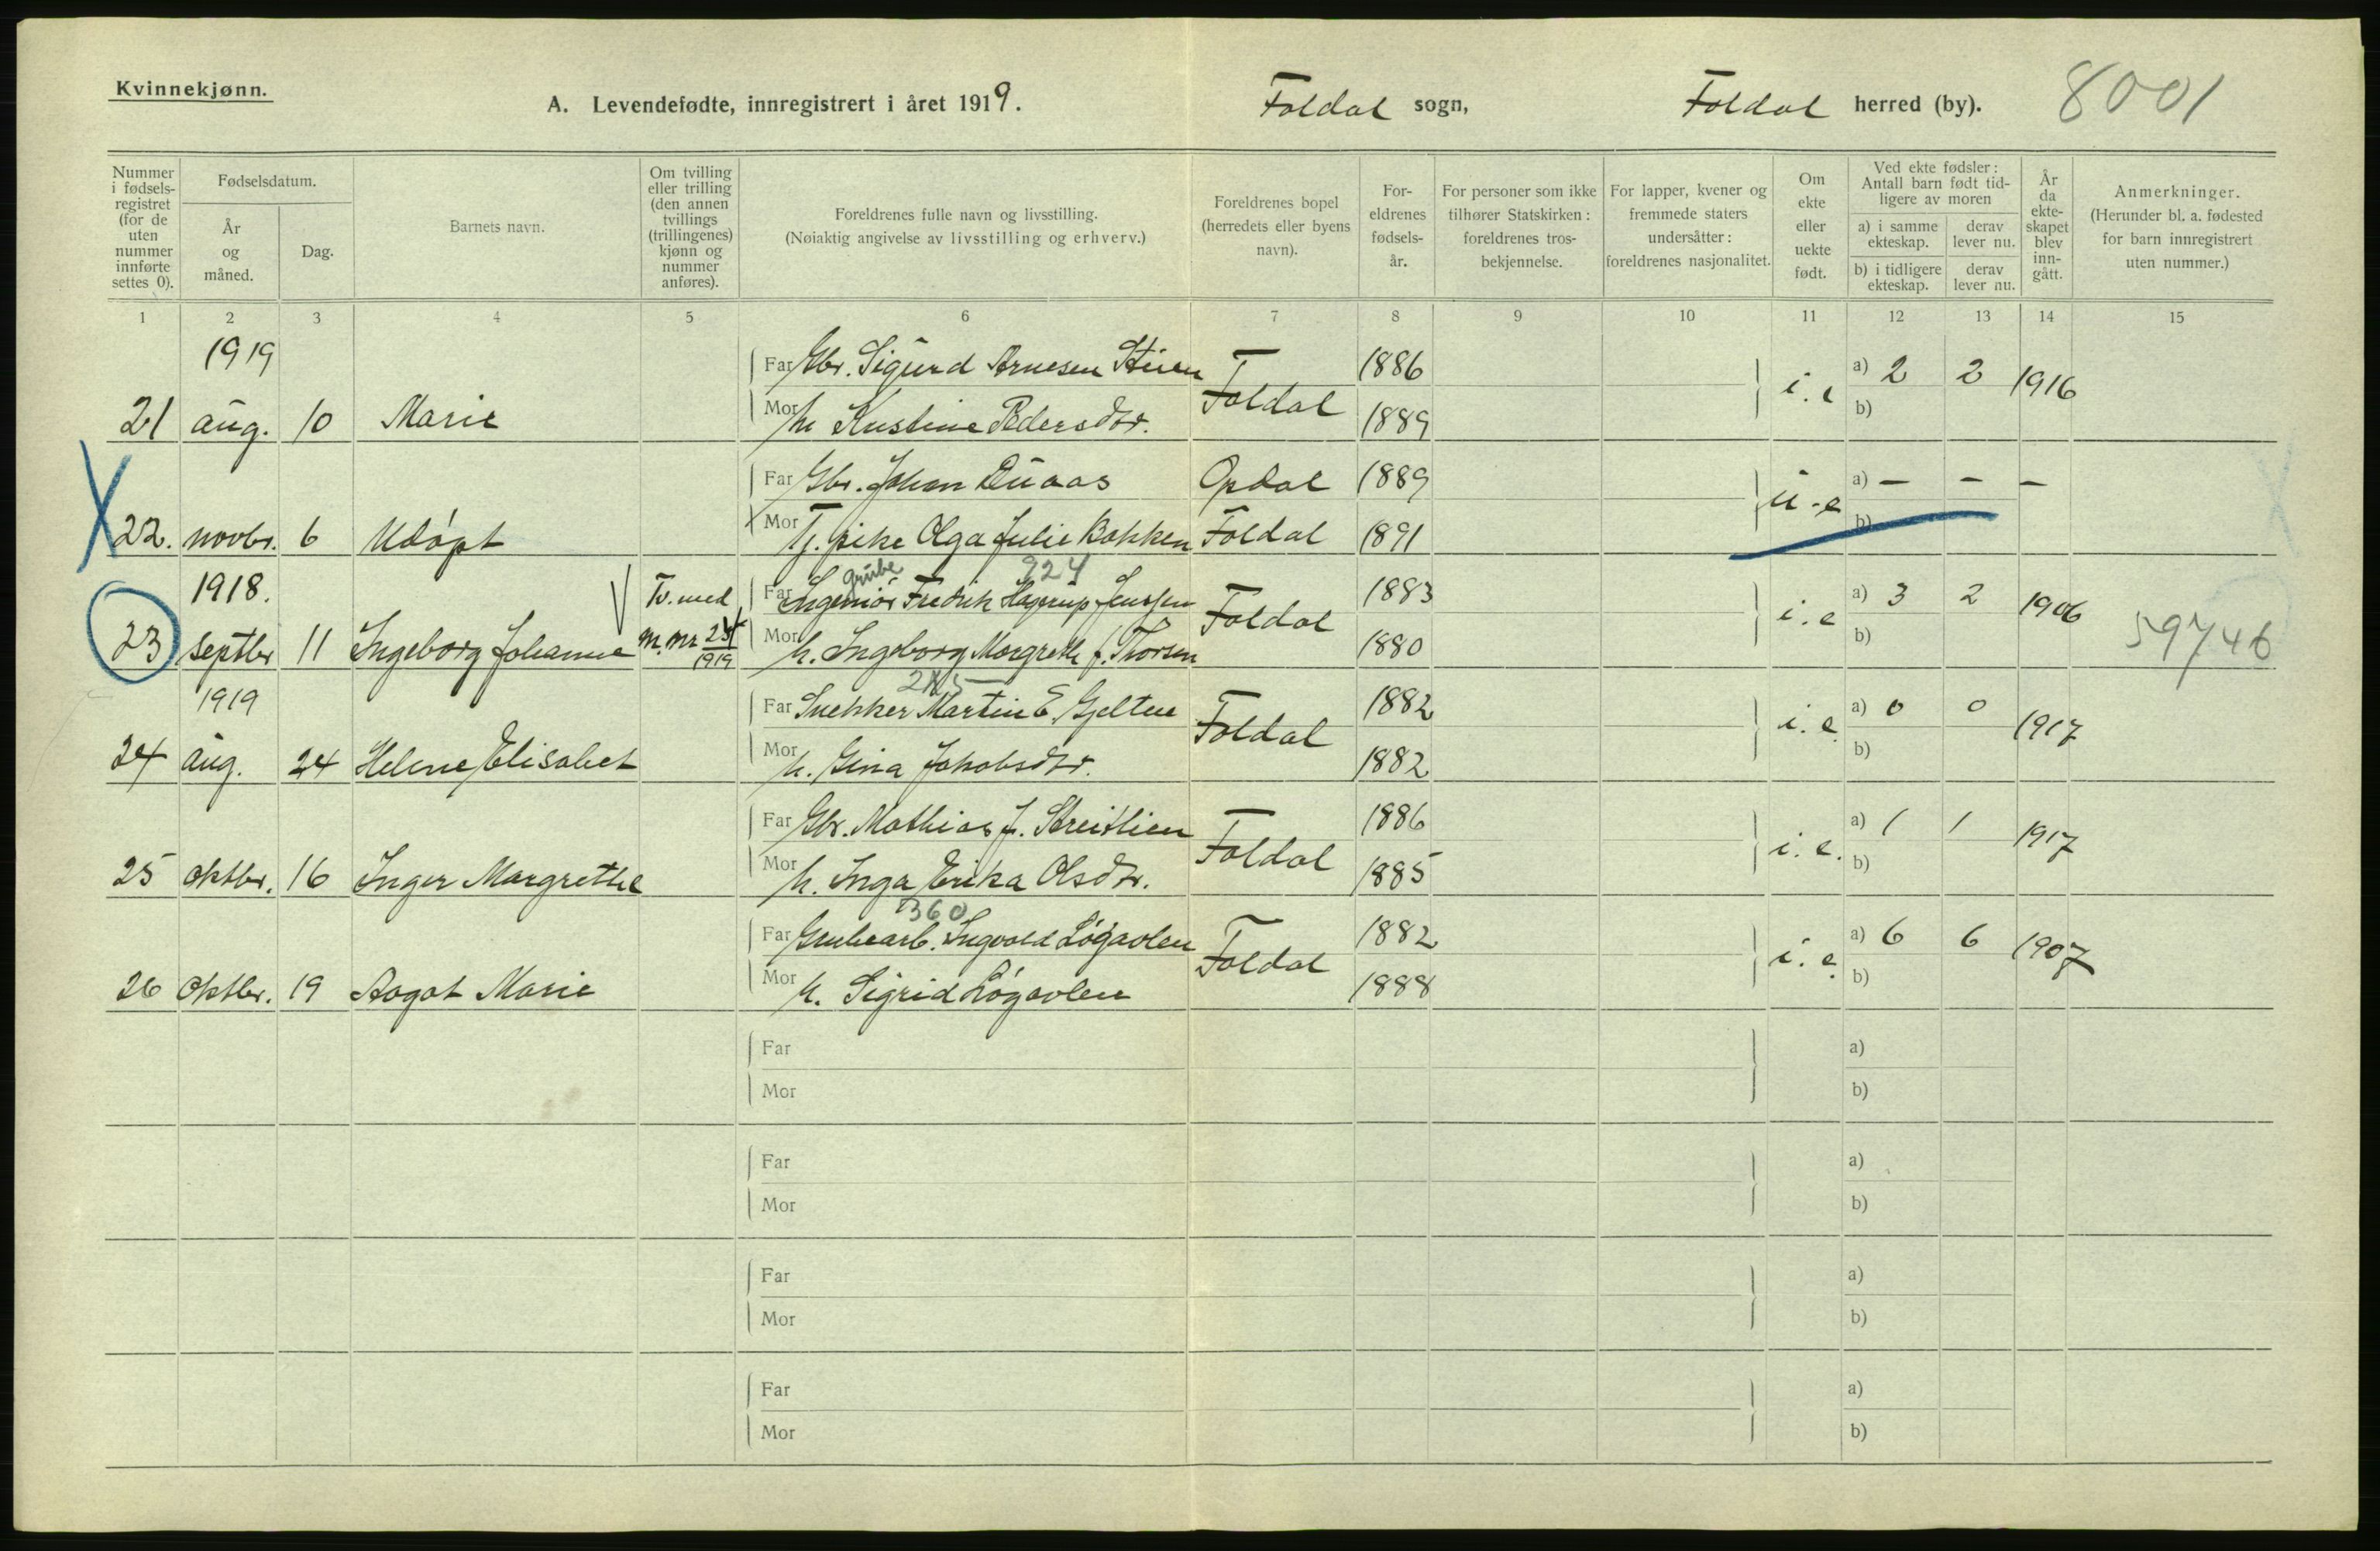 Kvinnekjønn.
A. Levendefødte, innregistrert i året 1919. Foldal sogn, Foldal herred (by). 8001
Nummer i fødsels-registret (for de uten nummer innførte settes 0).
Fødselsdatum.
År og måned.
Dag.
Barnets navn.
Om tvilling eller trilling (den annen tvillings (trillingenes) kjønn og nummer anføres).
Foreldrenes fulle navn og livsstilling.
(Nøiaktig angivelse av livsstilling og erhverv.)
Foreldrenes bopel (herredets eller byens navn).
For-eldrenes fødsels-år.
For personer som ikke tilhører Statskirken: foreldrenes tros-bekjennelse.
For lapper, kvener og fremmede staters undersåtter: foreldrenes nasjonalitet.
Om ekte eller uekte født.
Ved ekte fødsler: Antall barn født tid-ligere av moren
a) i samme ekteskap. derav lever nu.
b) i tidligere ekteskap. derav lever nu.
År da ekte-skapet blev inn-gått.
Anmerkninger.
(Herunder bl. a. fødested for barn innregistrert uten nummer.)
1 2 3 4 5 6 7 8 9 10 11 12 13 14 15
1919 Far Gbr. Sigurd Arnesen Stuen 1886 a) 2 2
21 aug. 10 Marie Mor h. Kristine Pedersdtr. Foldal 1889 i. e b) 1916
Far Gbr. Johan Duaas Opdal 1889 a) – – –
X 22. novbr. 6 Udøpt Mor Tj. pike Olga Julie Bakken Foldal 1891 u-e b)
grube 924
1918. Tv. med Far Ingeniør Fredrik Hagerup Jenssen 1883 a) 3 2
23 septbr 11 Ingeborg Johanne m. nr 25/1919 Mor h. Ingeborg Margrethe f. Thorsen Foldal 1880 i. e b) 1906 59746
285
1919 Far Snekker Martin E. Gjelten 1882 a) 0 0
24 aug. 24 Helene Elisabet Mor h. Gina Jakobsdtr. Foldal 1882 i. e. b) 1917
Far Gbr. Mathias J. Streitlien 1886 a) 1 1
25 oktbr. 16 Inger Margrethe Mor h. Inga Erika Olsdtr. Foldal 1885 i. e. b) 1917
360
Far Grubearb. Ingvald Løgavlen 1882 a) 6 6
26 oktbr. 19 Aagot Marie Mor h. Sigrid Løgavlen Foldal 1888 i. e. b) 1907
Far a)
Mor b)
Far a)
Mor b)
Far a)
Mor b)
Far a)
Mor b)